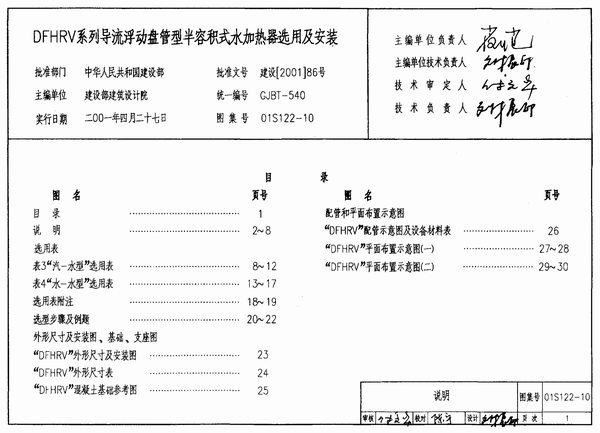 DFHRV系列导流浮动盘管型半容积式水加热器选用及安装
批准部门 中华人民共和国建设部 批准文号 建设[2001]86号
主编单位 建设部建筑设计院 统一编号 GJBT-540
实行日期 二00一年四月二十七日 图集号 01S122-10
主编单位负责人
主编单位技术负责人
技术审定人
技术负责人
目 录
图 名 页号
目 录 1
说 明 2~8
选用表
表3“汽-水型”选用表 8~12
表4“水-水型”选用表 13~17
选用表附注 18~19
选型步骤及例题 20~22
外形尺寸及安装图、基础、支座图
“DFHRV”外形尺寸及安装图 23
“DFHRV”外形尺寸表 24
“DFHRV”混凝土基础参考图 25
图 名 页号
配管和平面布置示意图
“DFHRV”配管示意图及设备材料表 26
“DFHRV”平面布置示意图(一) 27~28
“DFHRV”平面布置示意图(二) 29~30
说明 图集号 01S122-10
审核 校对 设计 页次 1